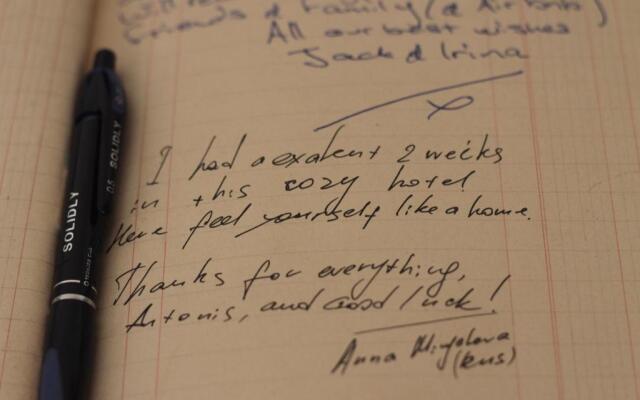 Friends & Family (& Airbnb)
All our best wishes
Jack & Irina
I had a exalent 2 weeks
in this cozy hotel
Here feel yourself like a home.
Thanks for everything,
Antonis, and Good luck!
Anna
(RUS)
SOLIDLY
0.5 SOLIDLY